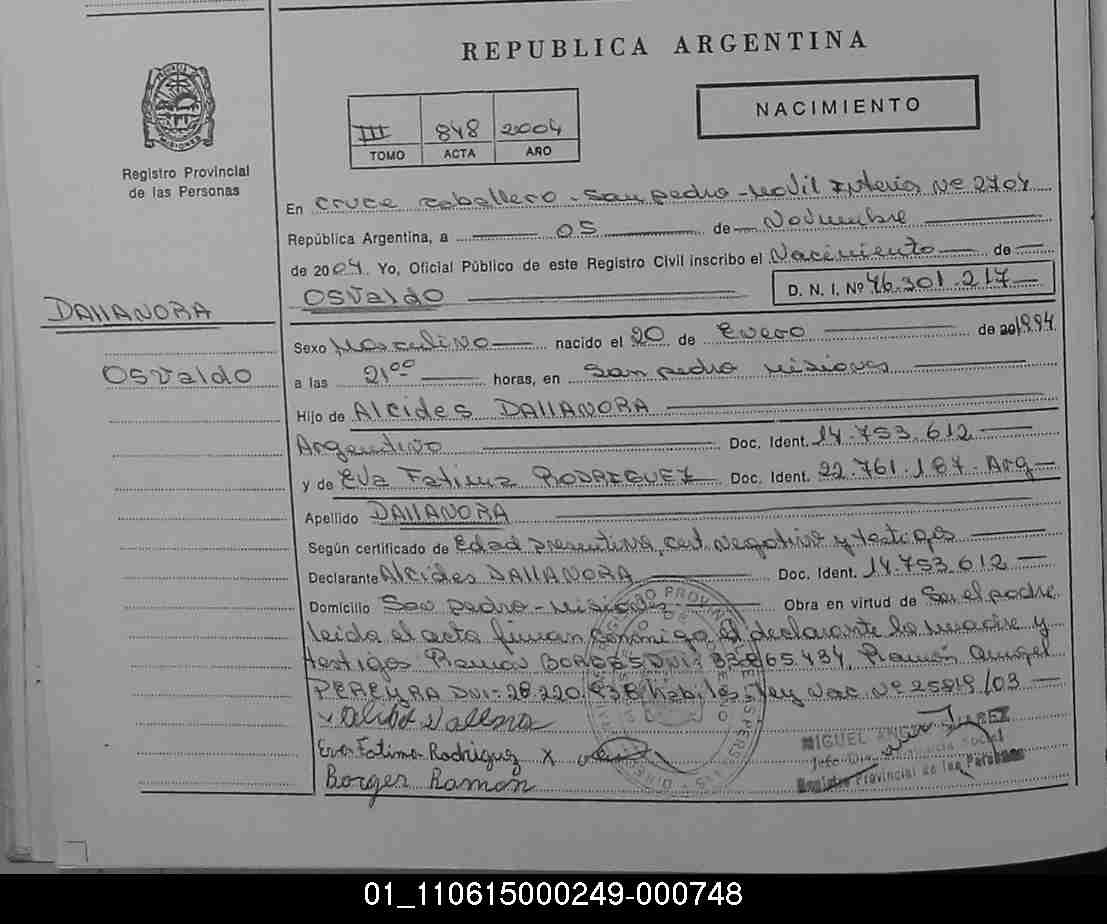 REPUBLICA ARGENTINA
NACIMIENTO
III 848 2004
TOMO ACTA AÑO
Registro Provincial
de las Personas
En Cruce Caballero - San pedro - Movil Interior Nº 2707
República Argentina, a 05 de Noviembre
de 2004. Yo, Oficial Público de este Registro Civil inscribo el Nacimiento de
OSValdo D. N. I. Nº 46.301.217
DALLANORA
OSValdo
Sexo Masculino nacido el 20 de Enero de 1994
a las 21⁰⁰ horas, en San pedro Misiones
Hijo de Alcides DALLANORA
Argentino Doc. Ident. 14.753.612
y de Eva Fatima RODRIGUEZ Doc. Ident. 22.761.187. Arg
Apellido DALLANORA
Según certificado de Edad presuntiva, cert. negativo y testigos
Declarante Alcides DALLANORA Doc. Ident. 14.753.612
Domicilio San pedro - Misiones Obra en virtud de Ser el padre
leida el acta firman conmigo el declarante la madre y
testigos Ramon BORGES DNI: Ramón Angel
PEREYRA DNI: 28.220. habiles, ley Nac. Nº 25819/03
Eva Fatima Rodriguez X
Borges Ramon
MIGUEL ANGEL JUAREZ
Registro Provincial de las Personas
01_110615000249-000748